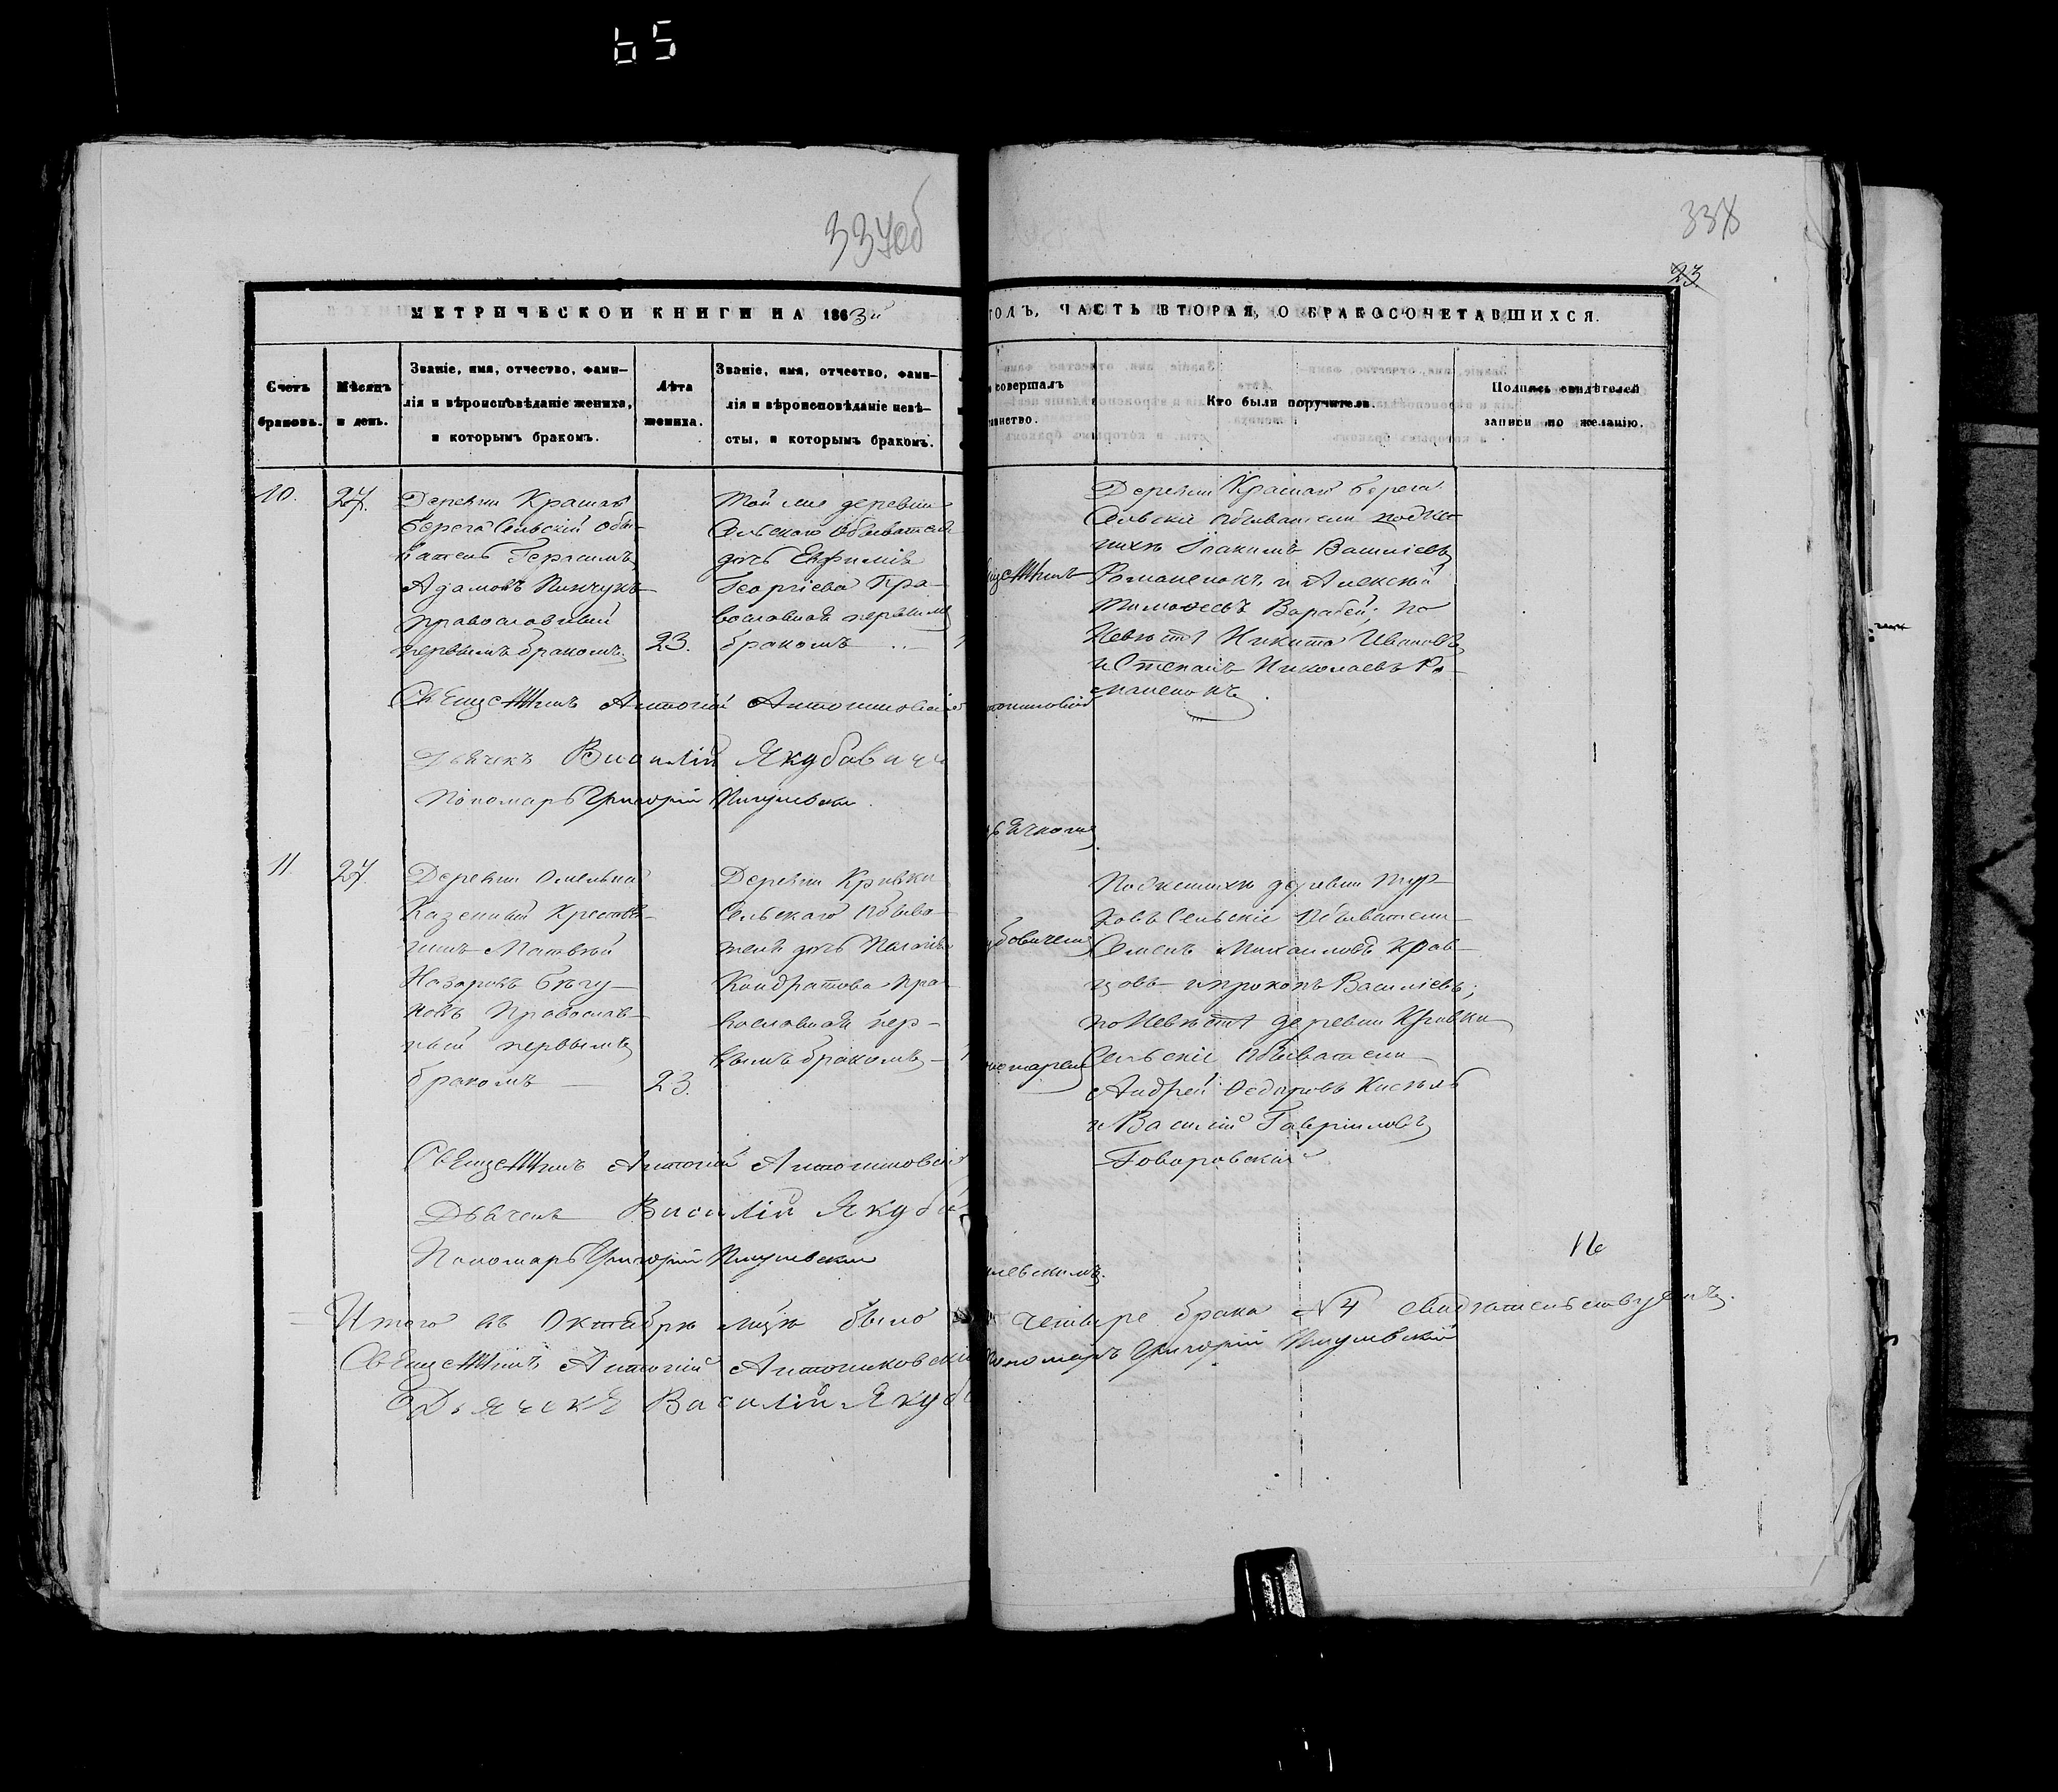 65
337об
338
23
МЕТРИЧЕСКОЙ КНИГИ НА 1863й
ГОДЪ, ЧАСТЬ ВТОРАЯ, О БРАКОСОЧЕТАВШИХСЯ.
Счетъ
браковъ.
Мѣсяцъ
и день.
Званіе, имя, отчество, фами-
лія и вѣроисповѣданіе жениха,
и которымъ бракомъ.
Лѣта
жениха.
Званіе, имя, отчество, фами-
лія и вѣроисповѣданіе невѣ-
сты, и которымъ бракомъ.
совершалъ
таинство.
Кто были поручители.
Подпись свидѣтелей
записи по желанію.
10.
27.
Деревни Краснаго
берега Сельскій обы-
ватель Герасимъ
Адамовъ Пинчукъ
православный
первымъ бракомъ.
23.
Той же деревни
Сельскаго Обывателя
дочь Евфимія
Георгіева Пра-
вославная первымъ
бракомъ
Деревни Краснаго берега
Сельскіе Обыватели по Же-
нихѣ Іоакимъ Василіевъ
Романенокъ, и Алексѣй
Тимофеевъ Варабей; по
Невѣстѣ Никита Ивановъ
и Степанъ Николаевъ Ро-
маненокъ.
Священникъ Антоній Антониновскій
Дьячекъ Василій Якубовичъ
Пономарь Григорій Пигулевскій
11
27.
Деревни Омельна
Казенный Крестья-
нинъ Матвѣй
Назаровъ Бѣгу-
новъ Православ-
ный первымъ
бракомъ
23.
Деревни Кривки
Сельскаго Обыва-
теля дочь Пелагія
Кондратова Пра-
вославная пер-
вымъ бракомъ
По Женихѣ деревни Тур-
ковъ Сельскіе Обыватели
Семенъ Михаиловъ Крав-
цовъ и Прокопъ Василіевъ;
по Невѣстѣ деревни Кривки
Сельскіе Обыватели
Андрей Федоровъ Кисель
и Василій Гавріиловъ
Говоровскій
Священникъ Антоній Антониновскій
Дьячекъ Василій Якубо
Пономарь Григорій Пигулевскій
Итого въ Октябрѣ мцѣ было
четыре брака №4 свидѣтельствуемъ.
Священникъ Антоній Антониновскій
Пономарь Григорій Пигулевскій
Дьячекъ Василій Якубо